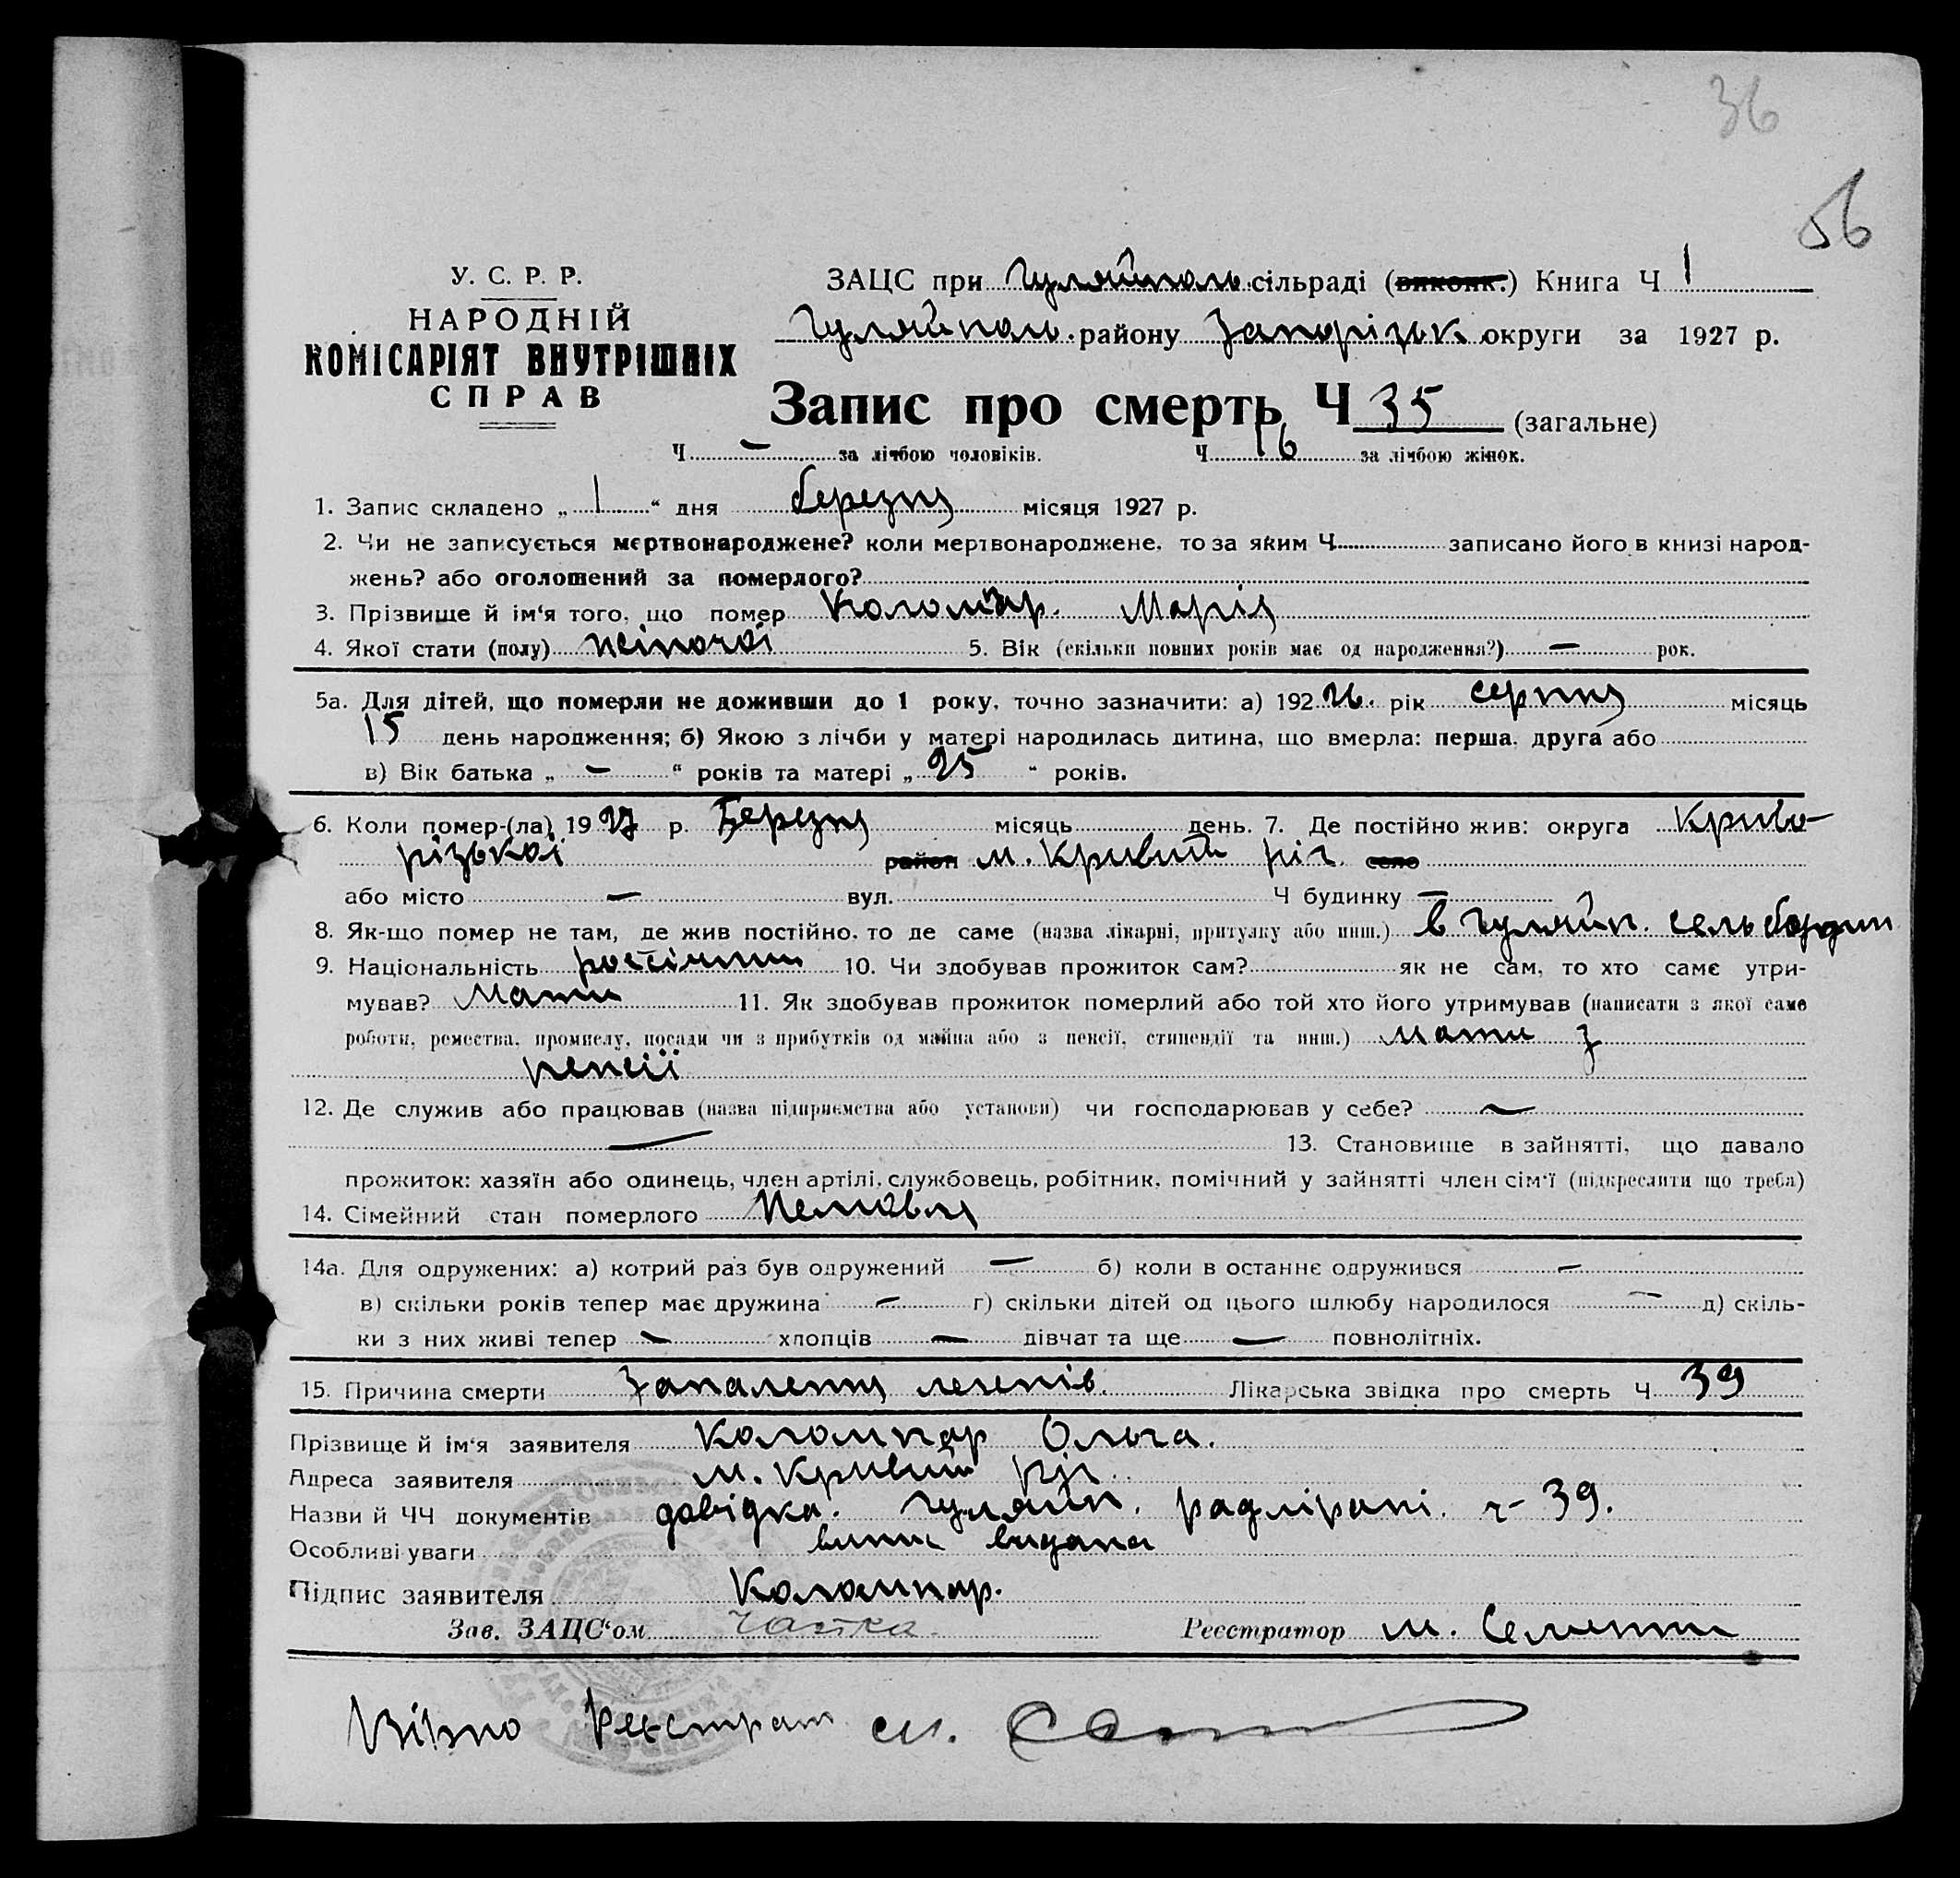 36
56
У. С. Р. Р.
НАРОДНІЙ
КОМІСАРІЯТ ВНУТРІШНІХ
СПРАВ
ЗАЦС при Гуляйполь. сільраді (виконк.) Книга Ч 1
Гуляйполь. району Запорізьк округи за 1927 р.
Запис про смерть Ч 35 (загальне)
Ч — за лічбою чоловіків. Ч 16 за лічбою жінок.
1. Запис складено „ 1 “ дня березня місяця 1927 р.
2. Чи не записується мертвонароджене? коли мертвонароджене, то за яким Ч записано його в книзі народ-
жень? або оголошений за померлого?
3. Прізвище й ім‘я того, що помер Марія
4. Якої стати (полу) жіночої 5. Вік (скільки повних років має од народження?) — рок.
5а. Для дітей, що померли не доживши до 1 року, точно зазначити: а) 192 26. рік серпня місяць
15 день народження; б) Якою з лічби у матері народилась дитина, що вмерла: перша, друга або
в) Вік батька „ — “ років та матері „ 25 “ років.
6. Коли помер-(ла) 19 27 р. Березня місяць день. 7. Де постійно жив: округа Криво-
різької район м. Кривий ріг село
або місто — вул. Ч будинку —
8. Як-що помер не там, де жив постійно, то де саме (назва лікарні, притулку або инш.) в Гуляйп.
9. Національність 10. Чи здобував прожиток сам? як не сам, то хто саме утри-
мував? Мати 11. Як здобував прожиток померлий або той хто його утримував (написати з якої саме
роботи, ремества, промислу, посади чи з прибутків од майна або з пенсії, стипендії та инш.) мати з
пенсії
12. Де служив або працював (назва підприємства або установи) чи господарював у себе? —
— 13. Становище в зайнятті, що давало
прожиток: хазяїн або одинець, член артілі, службовець, робітник, помічний у зайнятті член сім‘ї (підкреслити що треба)
14. Сімейний стан померлого
14а. Для одружених: а) котрий раз був одружений — б) коли в останнє одружився —
в) скільки років тепер має дружина — г) скільки дітей од цього шлюбу народилося — д) скіль-
ки з них живі тепер — хлопців — дівчат та ще — повнолітніх.
15. Причина смерти Запалення легенів. Лікарська звідка про смерть Ч 39
Прізвище й ім‘я заявителя Коломпар Ольга.
Адреса заявителя м. Кривий ріг.
Назви й ЧЧ документів довідка. Гуляйп. ч- 39.
Особливі уваги видана
Підпис заявителя Коломпар.
Зав. ЗАЦС‘ом Чайка Реєстратор М.
Вірно Реєстрат